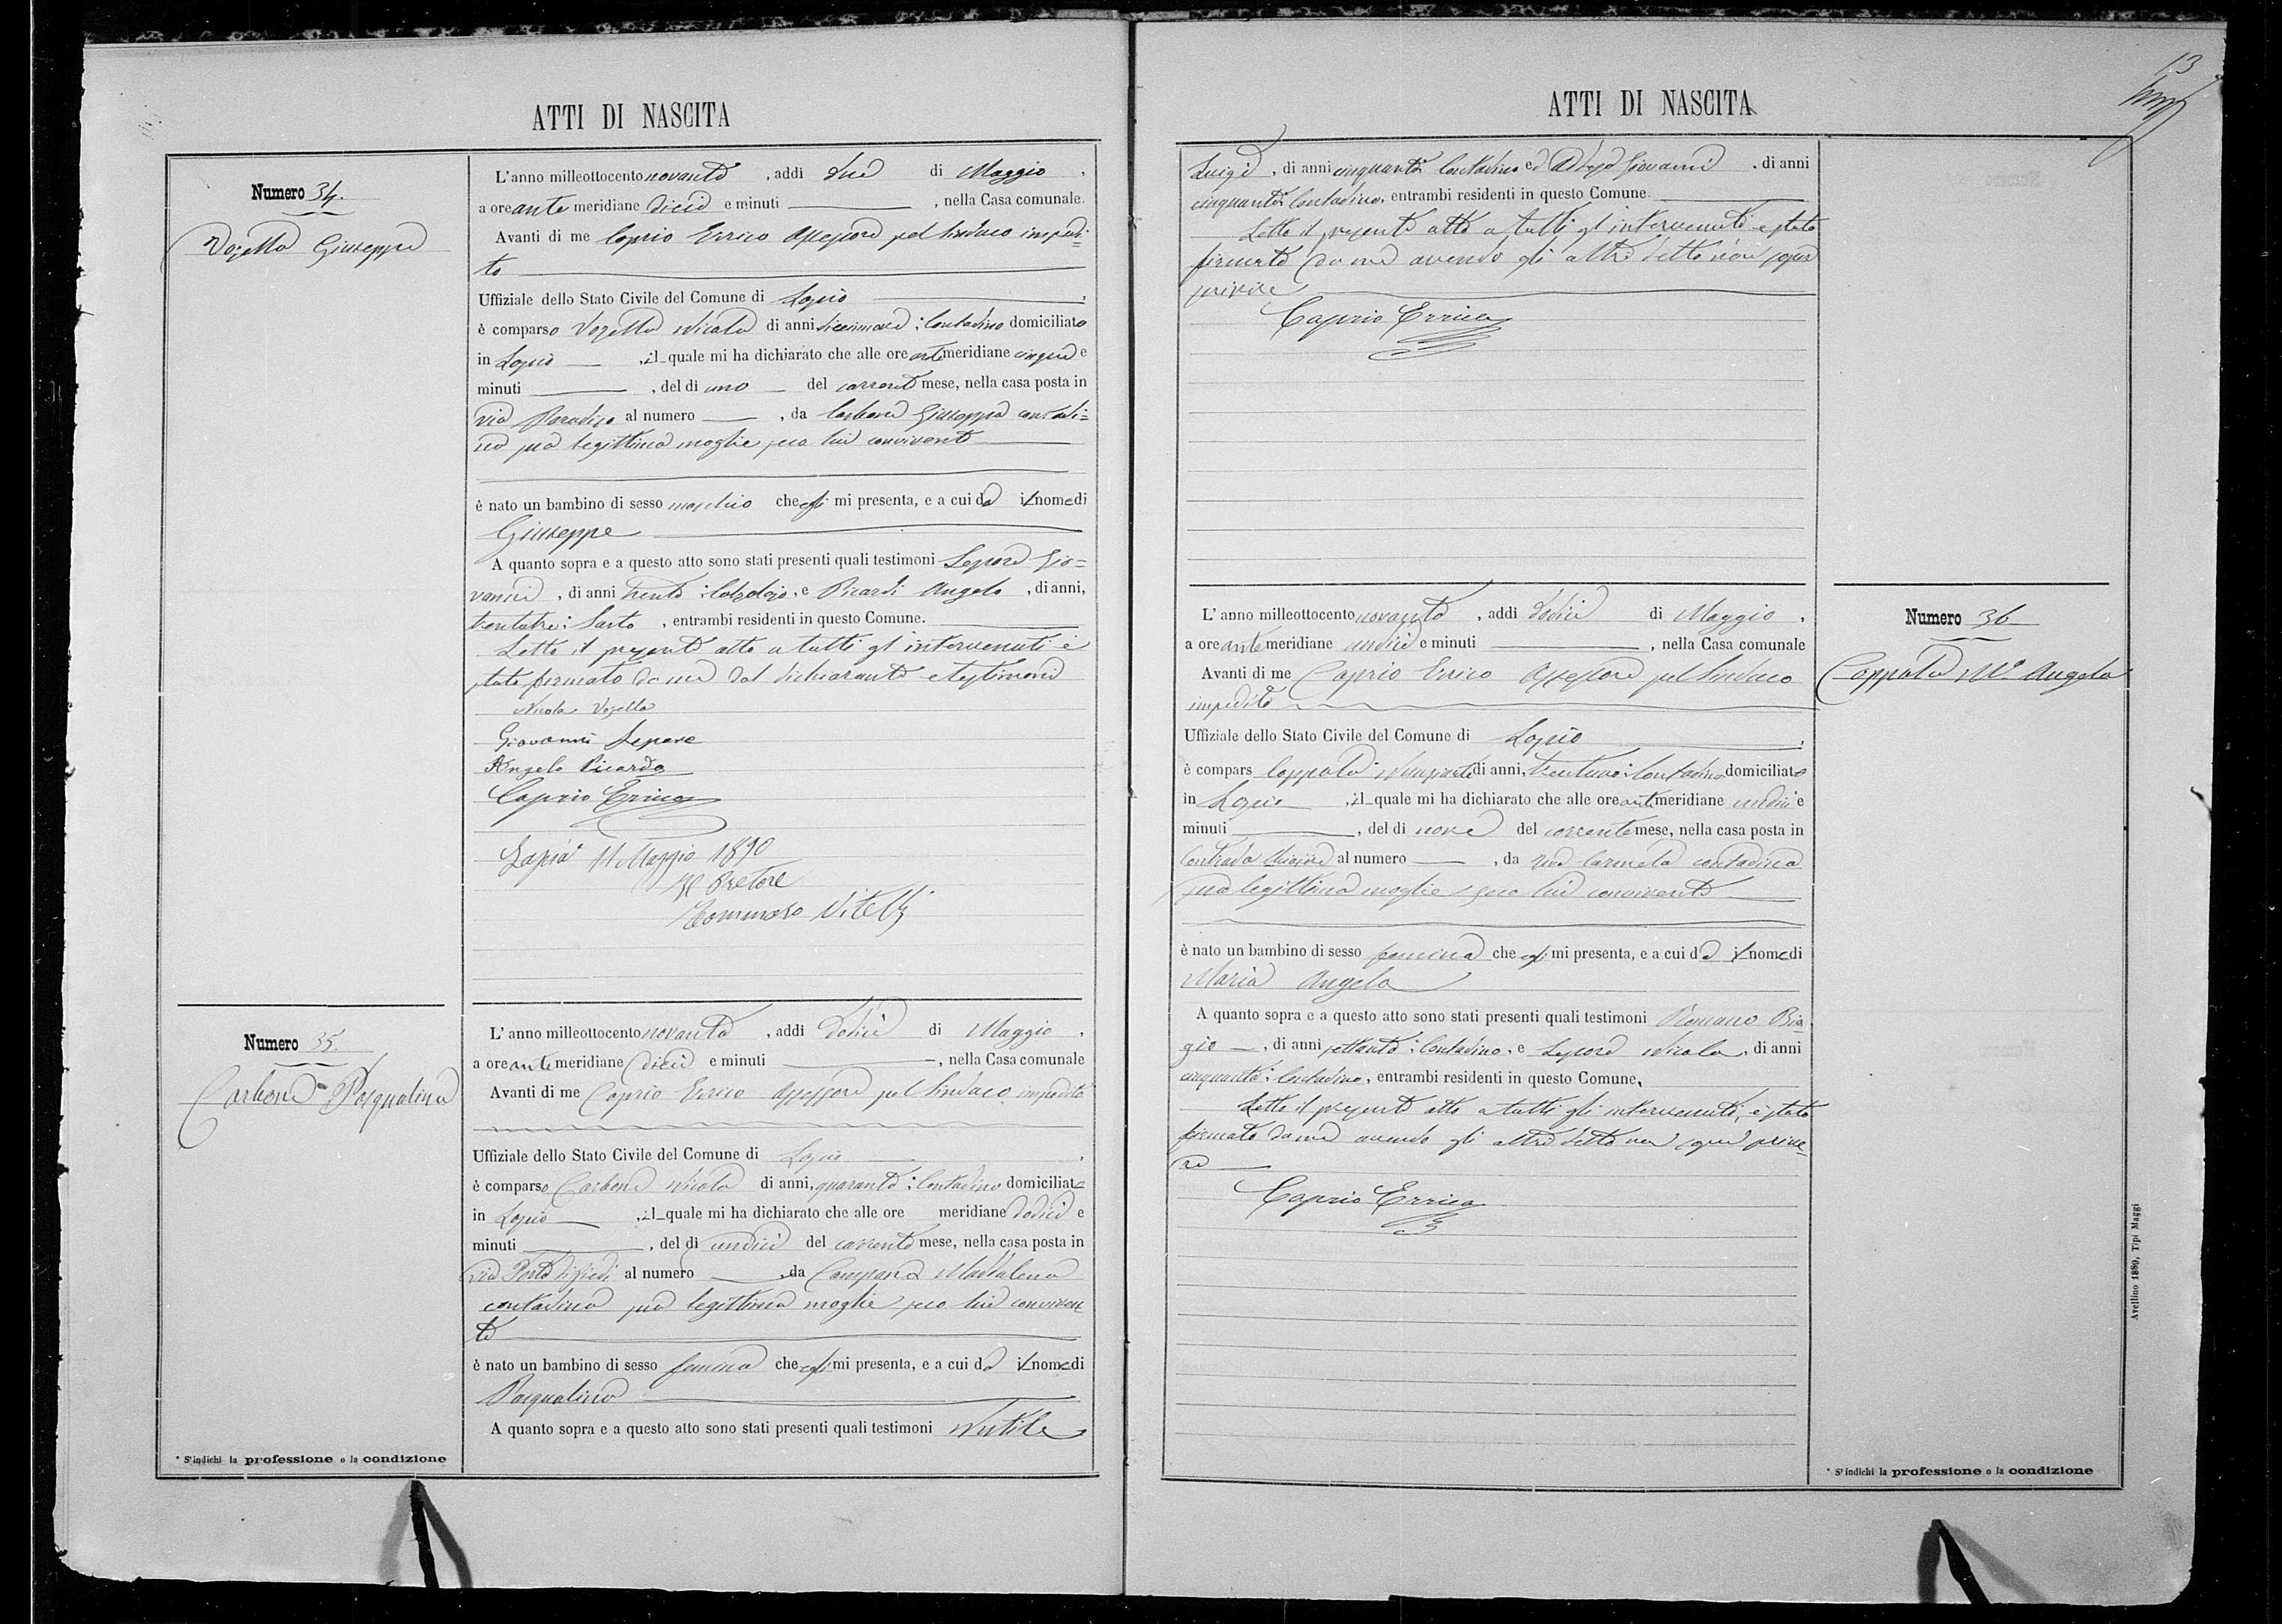 ATTI DI NASCITA
Numero 34.
Vozella Giuseppe
L'anno milleottocento novanta, addì due di Maggio,
a ore ante meridiane dieci e minuti, nella Casa comunale.
Avanti di me Caprio Errico Assessore pel Sindaco impedi=
to
Uffiziale dello Stato Civile del Comune di Lapio,
è comparso Vozella Nicola di anni; Contadino domiciliato
in Lapio, il quale mi ha dichiarato che alle ore antimeridiane cinque e
minuti, del dì uno del corrente mese, nella casa posta in
via Paradiso al numero, da Carbone Giuseppa contadi=
na sua legittima moglie seco lui convivente
è nato un bambino di sesso maschio che egli mi presenta, e a cui dà il nome di
Giuseppe
A quanto sopra e a questo atto sono stati presenti quali testimoni Lepore Gio=
vanni, di anni trenta: Calzolajo, e Picardi Angelo, di anni,
trentatre: Sarto, entrambi residenti in questo Comune.
Letto il presente atto a tutti gl'intervenuti è
stato firmato da me dal dichiarante e testimoni
Nicola Vozella
Giovanni Lepore
Angelo Picardo
Caprio Errico
Lapio 11 Maggio 1890
Il Pretore
Tommaso Vitelli
Numero 35.
Carbone Pasqualina
L'anno milleottocento novanta, addì dodici di Maggio,
a ore ante meridiane dieci e minuti, nella Casa comunale
Avanti di me Caprio Errico Assessore pel Sindaco impedito
Uffiziale dello Stato Civile del Comune di Lapio,
è comparso Carbone Nicola di anni, quaranta; Contadino domiciliato
in Lapio, il quale mi ha dichiarato che alle ore meridiane dodici e
minuti, del dì undici del corrente mese, nella casa posta in
via Porta di piedi al numero, da Campana Maddalena
contadina sua legittima moglie seco lui conviven
te
è nato un bambino di sesso femina che egli mi presenta, e a cui dà il nome di
Pasqualina
A quanto sopra e a questo atto sono stati presenti quali testimoni
* S'indichi la professione o la condizione
ATTI DI NASCITA
13
Luigi, di anni cinquanta Contadino ed Giovanni, di anni
cinquanta Contadino, entrambi residenti in questo Comune.
Letto il presente atto a tutti gl'intervenuti è stato
firmato da me avendo gli altri detto non saper
scrivere
Caprio Errico
Numero 36
Coppola Ma Angela
L'anno milleottocento novanta, addì dodici di Maggio,
a ore ante meridiane undici e minuti, nella Casa comunale
Avanti di me Caprio Errico Assessore pel Sindaco
impedito
Uffiziale dello Stato Civile del Comune di Lapio,
è compars Coppola di anni, trentuno: Contadino domiciliato
in Lapio, il quale mi ha dichiarato che alle ore antimeridiane undici e
minuti, del dì nove del corrente mese, nella casa posta in
Contrada al numero, da Carmela contadina
sua legittima moglie seco lui convivente
è nato un bambino di sesso femina che egli mi presenta, e a cui dà il nome di
Maria Angela
A quanto sopra e a questo atto sono stati presenti quali testimoni Romano Bia
gio, di anni settanta: Contadino, e Lepore Nicola, di anni
cinquanta: Contadino, entrambi residenti in questo Comune,
Letto il presente atto a tutti gli intervenuti, è stato
firmato da me avendo gli altri detto non saper scrive
re
Caprio Errico
* S'indichi la professione o la condizione
Avellino 1889, Tipi Maggi